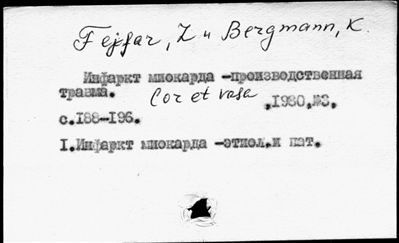 Fejfar, Z и Bergmann, K.
Инфаркт миокарда -производственная
травма. Cor et vasa ,1980,№3,
с.188-196.
I.Инфаркт миокарда -этиол.и пат.